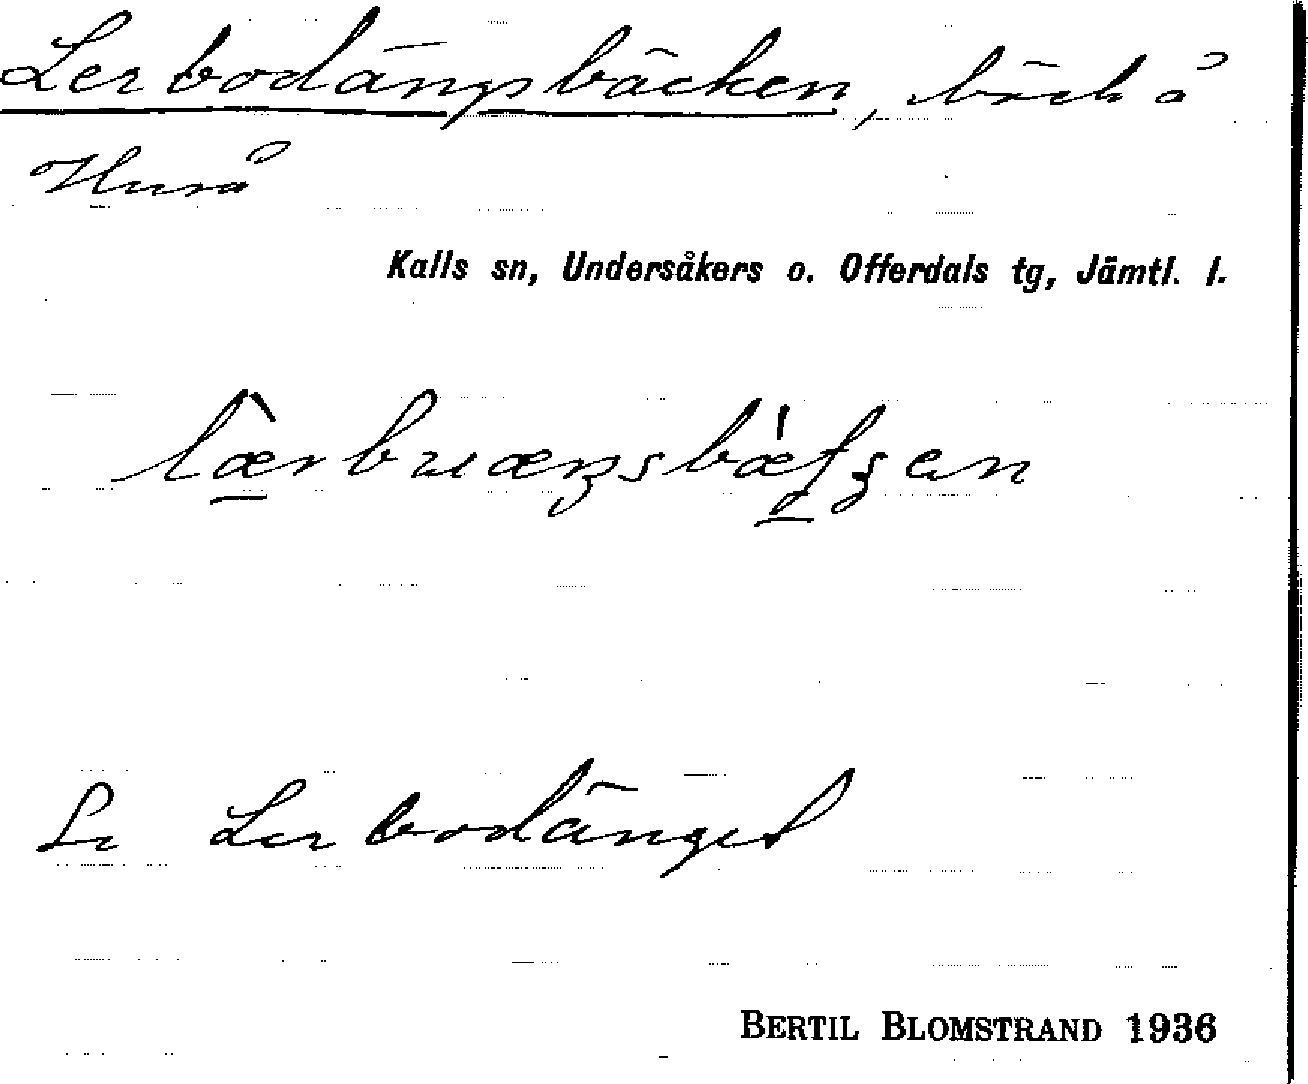 Lerbodängsbäcken, bäck å
Huså
Kalls sn, Undersåkers o. Offerdals tg, Jämtl. l.
Se Lerbodänget
BERTIL BLOMSTRAND 1936